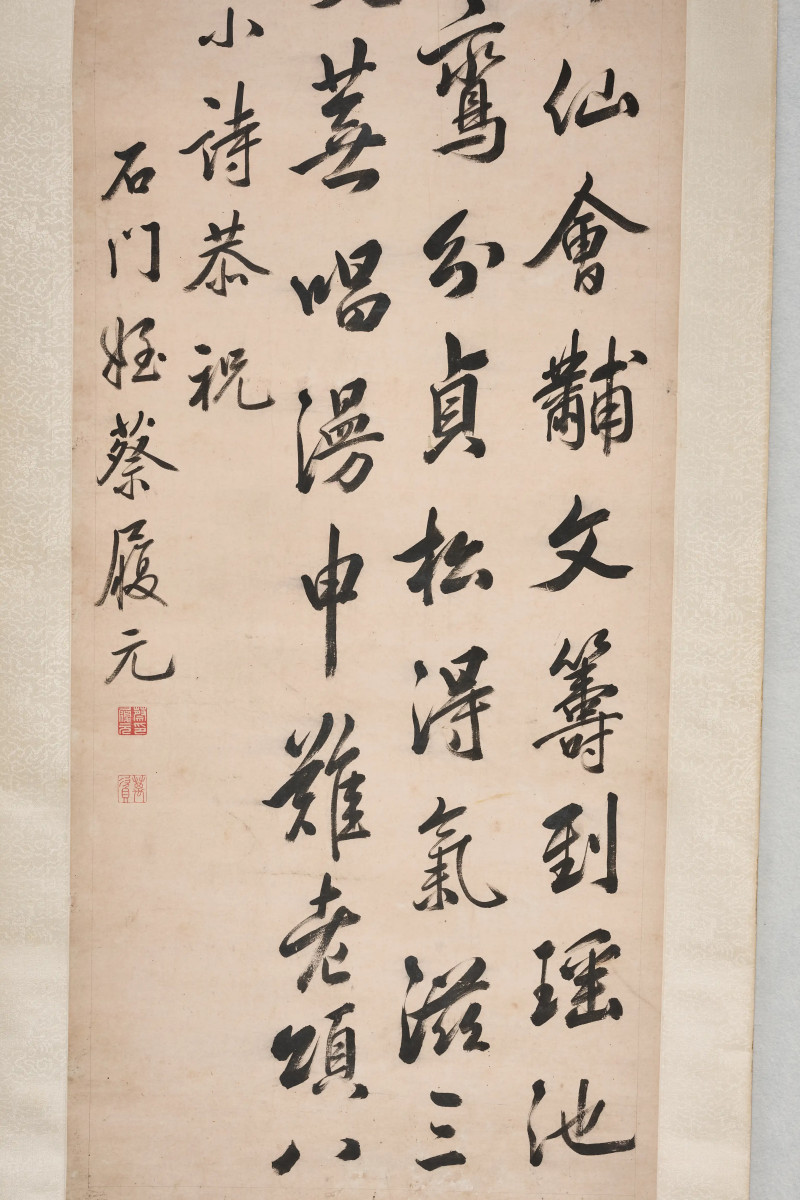 仙會黼文籌到瑤池
鸞分貞松得氣滋三
蕪唱漫申難老頌八
小詩恭祝
石門姪蔡履元